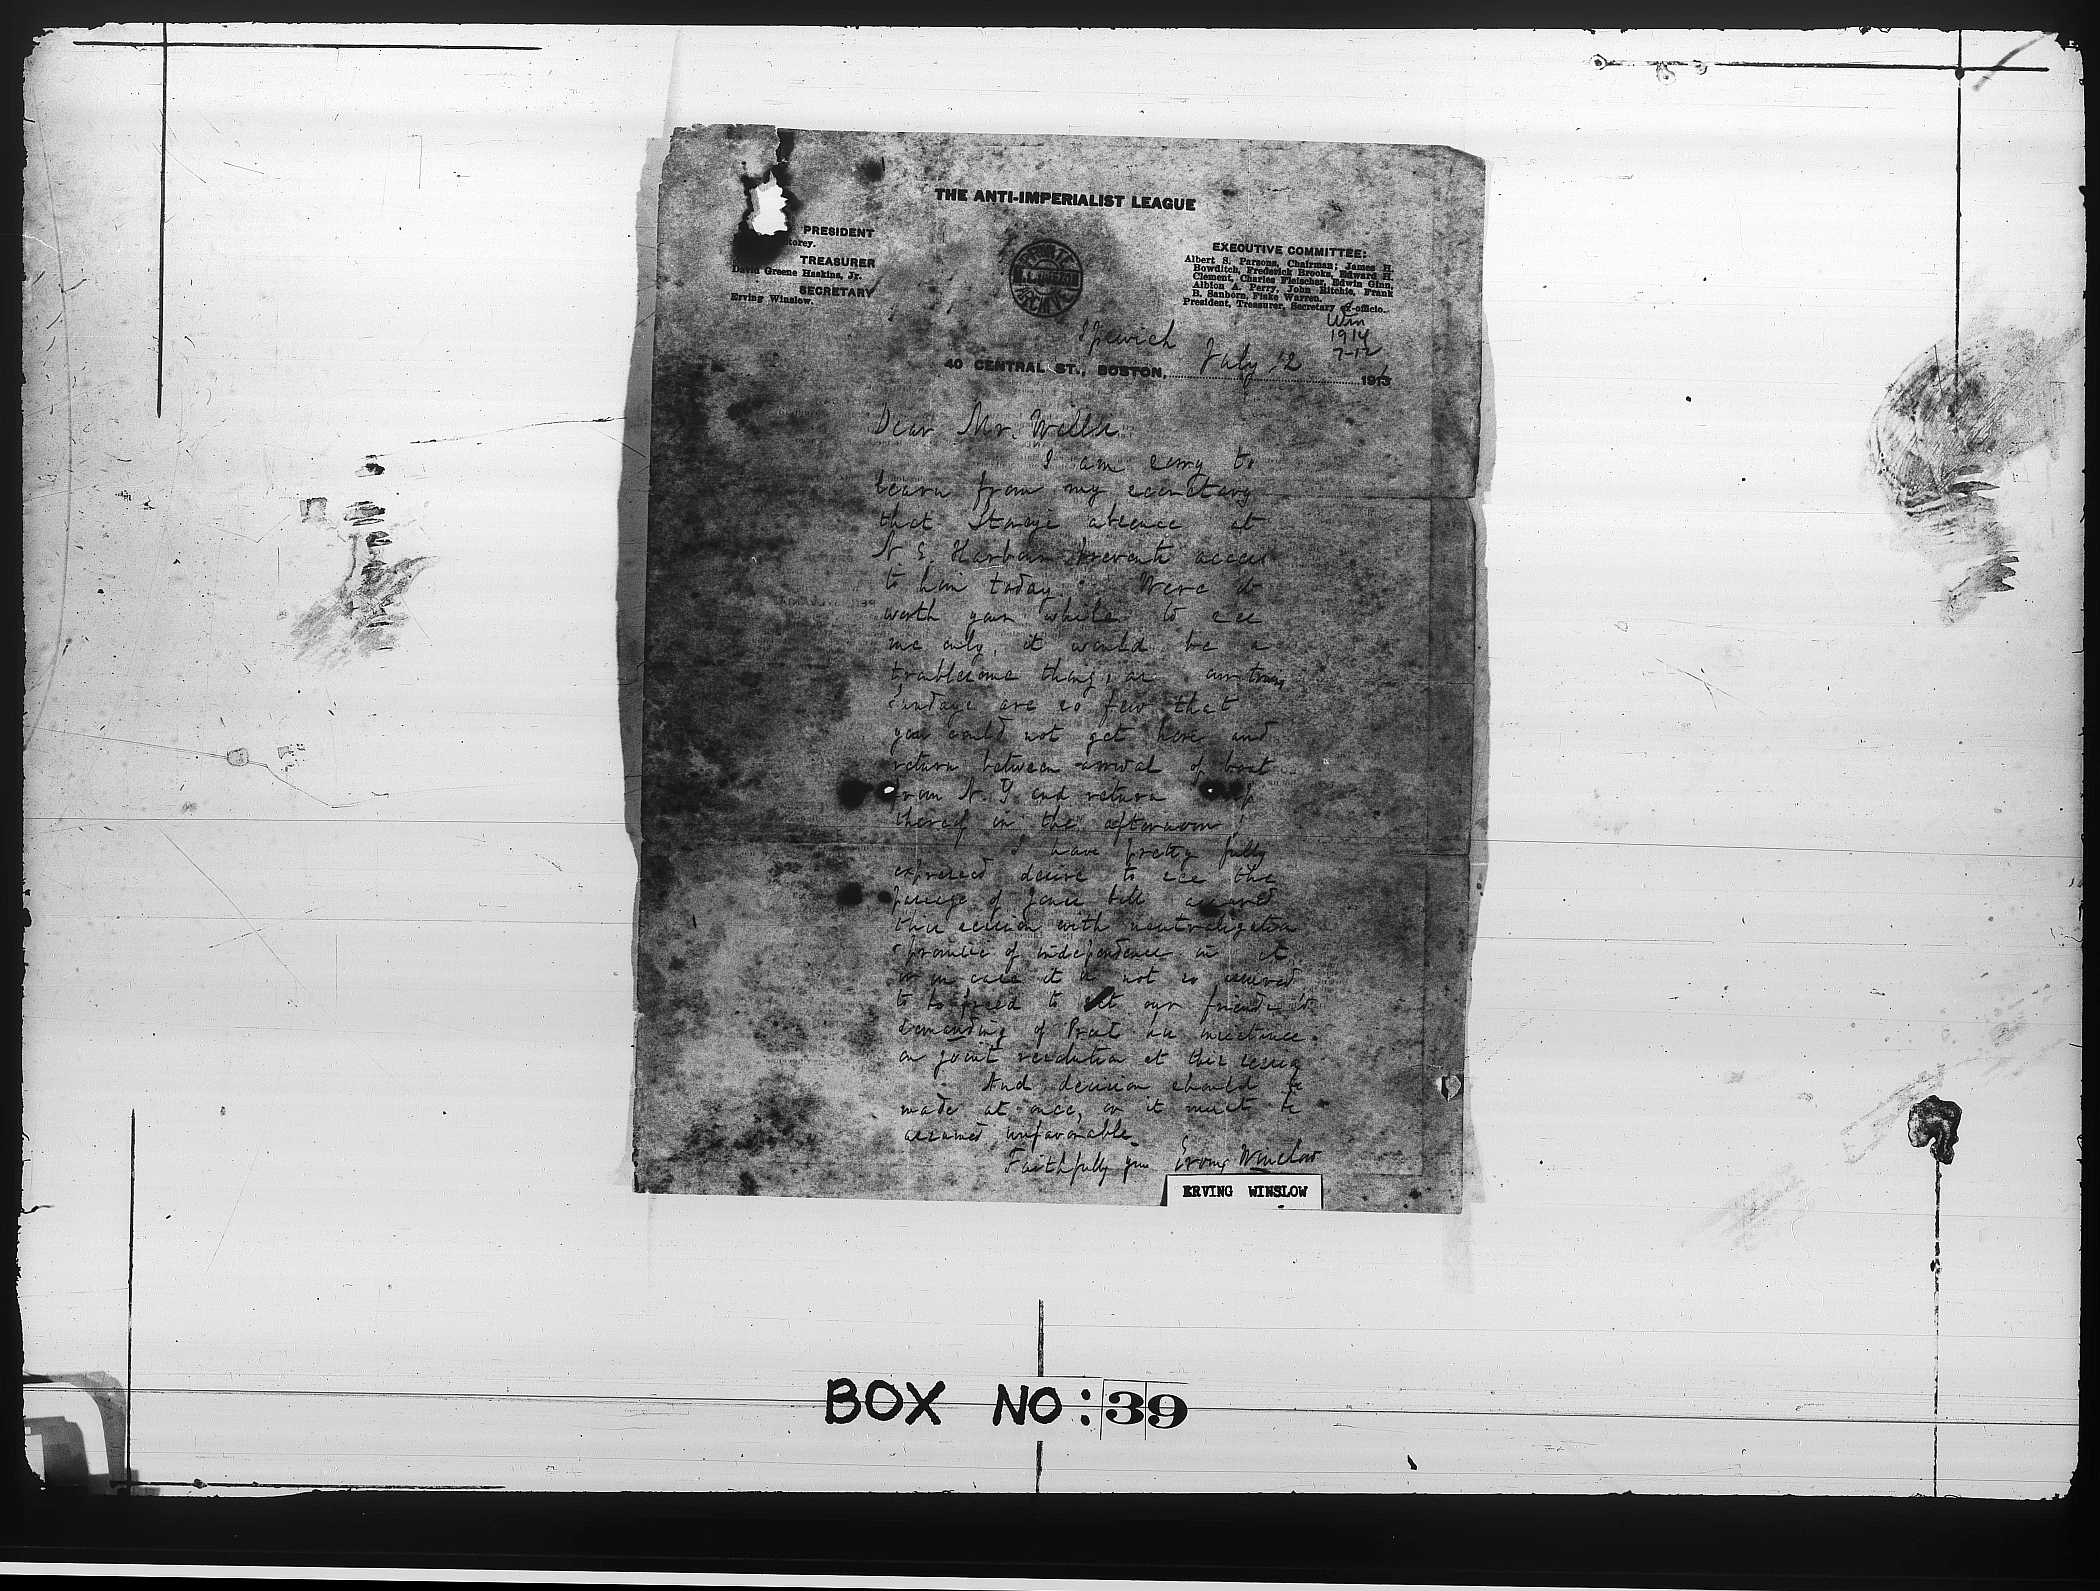 THE ANTI-IMPERIALIST LEAGUE
PRESIDENT
torey.
TREASURER
David Greene Haskins, Jr.
SECRETARY
Erving Winslow.
EXECUTIVE COMMITTEE:
Albert S. Parsons, Chairman; James H.
Bowditch, Frederick Brooks, Edward H.
Clement, Charles Fleischer, Edwin Ginn,
Albion A. Perry, John Ritchie, Frank
B. Sanborn, Fiske Warren.
President, Treasurer, Secretary ex-officio.
PRIVATE
Win
1914
7-12
Ipswich
40 CENTRAL ST., BOSTON, July 12 191
Dear Mr.
I am sorry to
learn from my secretary
that Storeys absence at
N. E. Harbor prevents access
to him today. Were it
worth your while to see
me only, it would be a
troublesome thing, as our trains
Sundays are so few that
you could not get here and
return between arrival of boat
from N.Y. and return
thereof in the afternoon!
I have pretty fully
expressed desire to see the
passage of Jones bill assured
this session with neutralization
promise of independence in it,
or in case it is not so assured
to to set our friends to
demanding of Prest his insistance
on joint resolution at this
And decision should be
made at once, or it must be
assumed unfavorable.
Faithfully yrs Erving Winslow
ERVING WINSLOW
BOX NO: 39